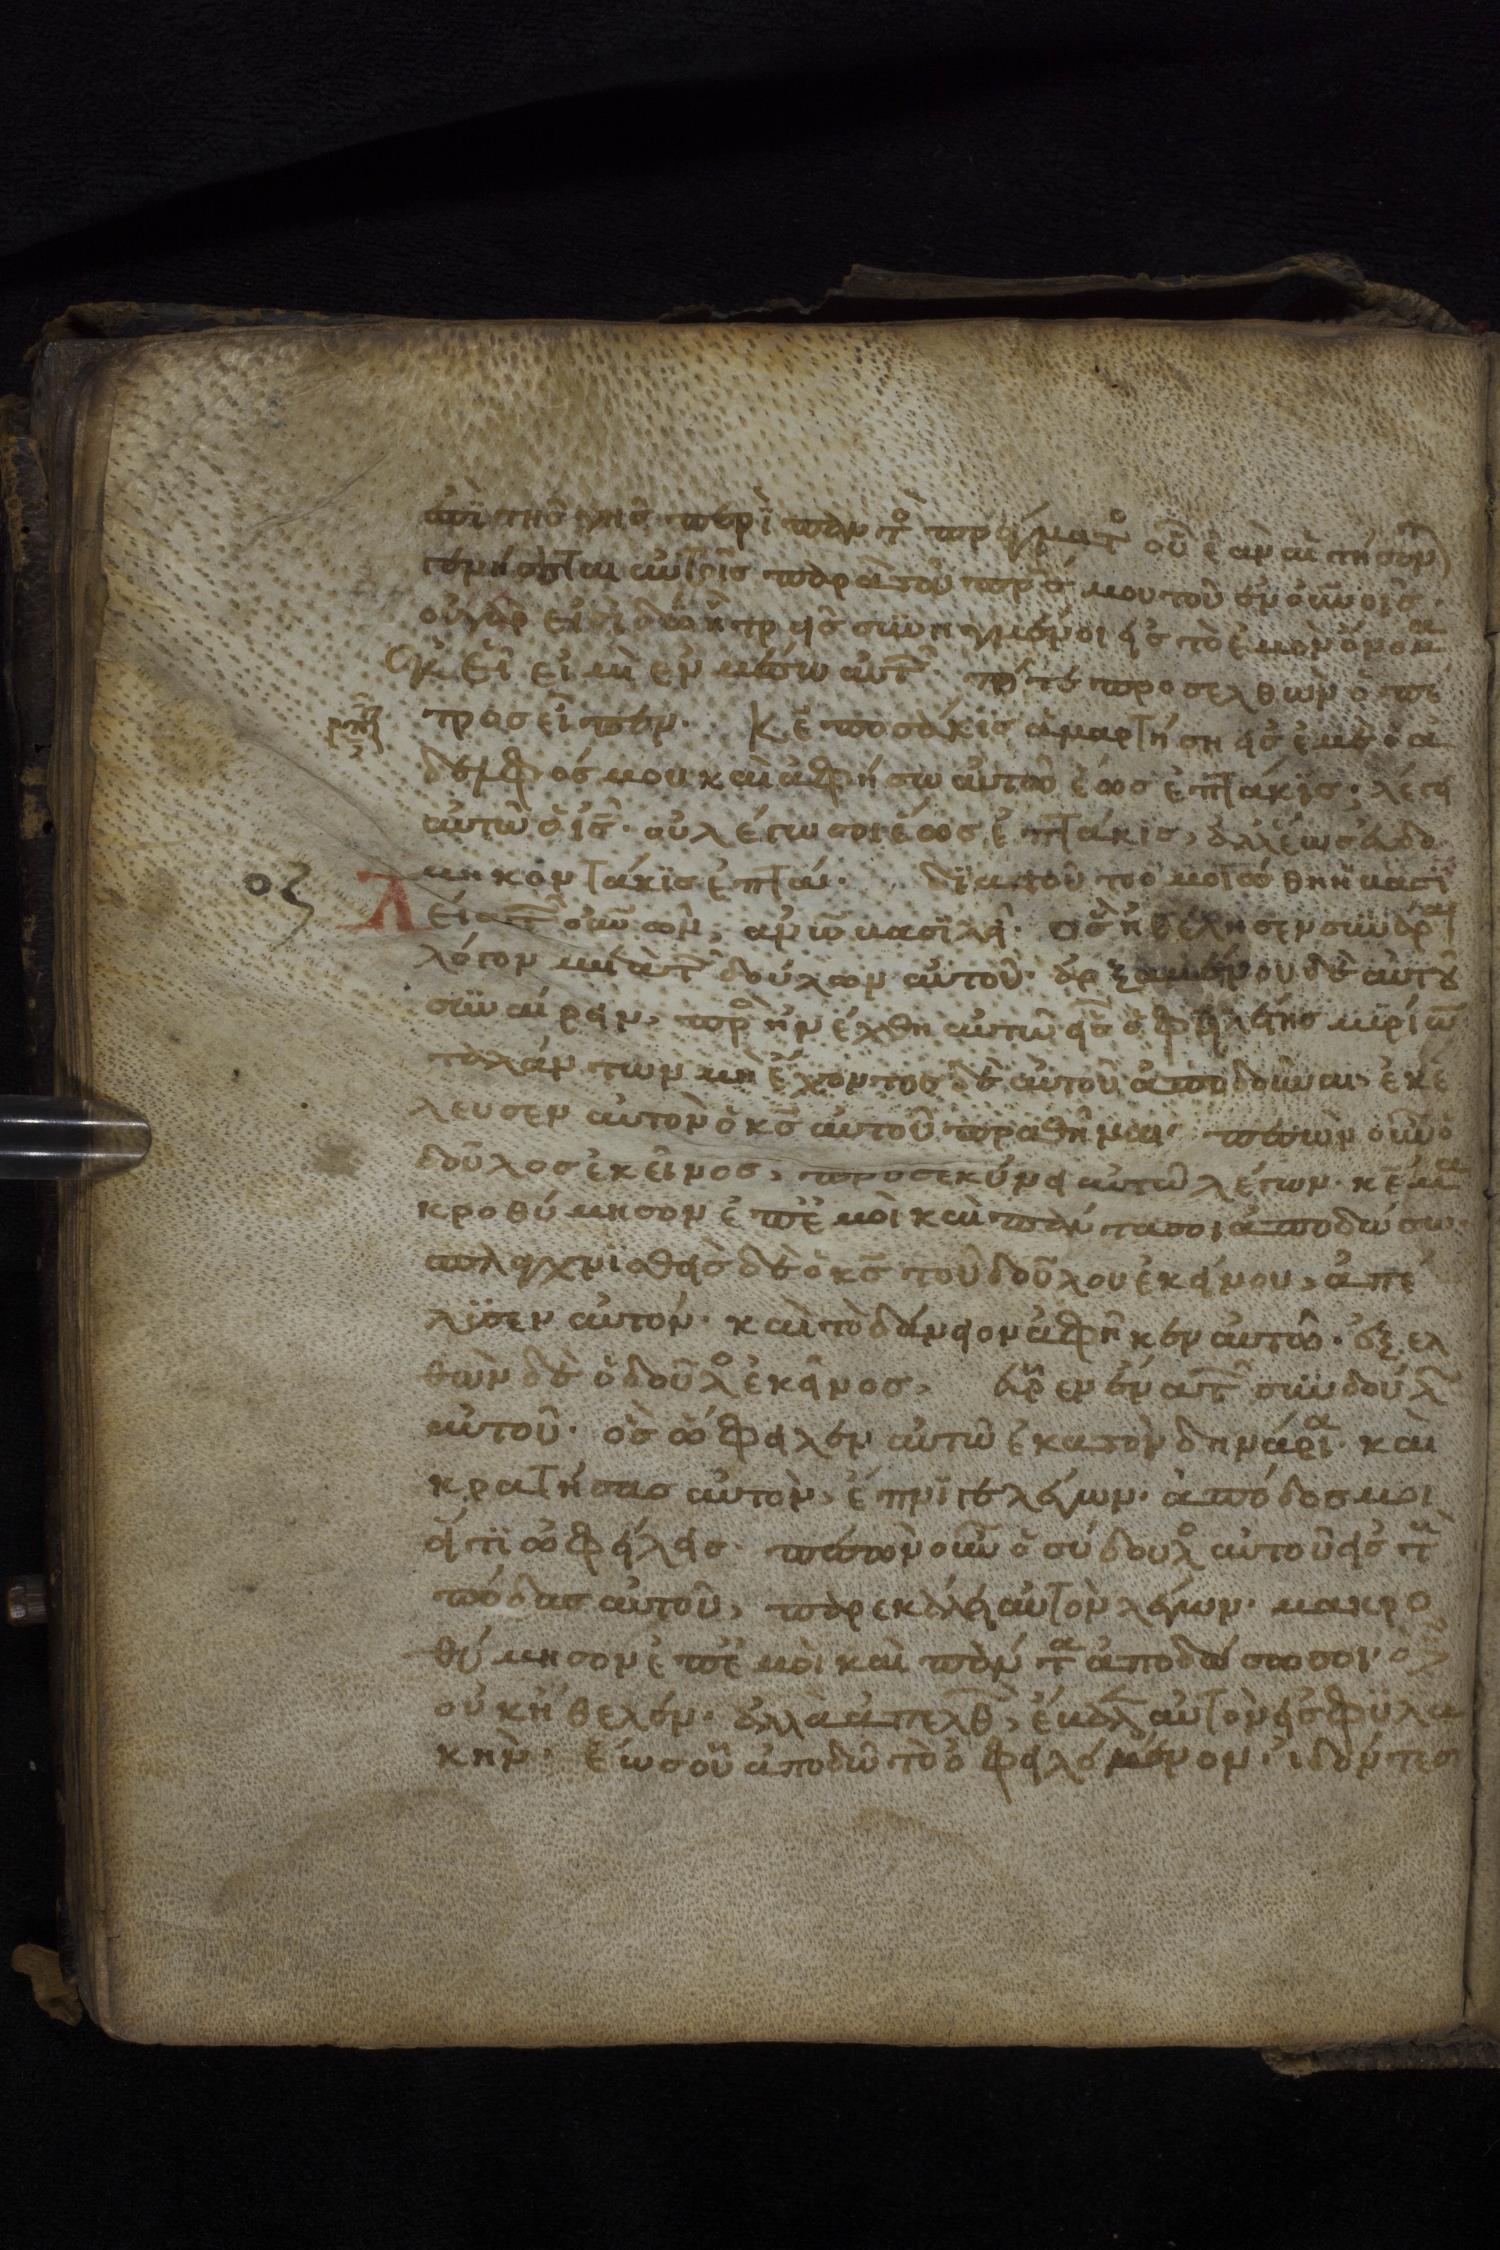 ἐπὶ τῆς γῆς περὶ παντ πράγματ οὗ ἐὰν αἰτήσων
γενήσεται αὐτοῖς παρὰ τοῦ πρς μου τοῦ ἐν οὐνοις·
οὗ γὰρ εἰσὶ δύο ἢ τρεῖς συνηγμένοι εἰς τὸ ἐμὸν ὄνομα
ἐκεῖ εἰμὶ ἐν μέσω αὐτ τότε προσελθὼν ὁ πέ
τρος εἶπεν· κε ποσάκις ἁμαρτήσει εἰς ἐμὲ ὁ ἀ
δελφός μου καὶ ἀφήσω αὐτῶ ἕως ἑπτάκις; λέγει
αὐτῶ ὁ ις· οὐ λέγω σοι ἕως ἑπτάκις, ἀλλ ἕως ἑβδο
οζ μηκοντάκις ἑπτά· διατοῦτο ὁμοιώθη ἡ βασι
λεία τ οὐνων, ανω βασιλεῖ· ὃς ἠθέλησεν συνᾶραι
λόγον μετὰ τ δούλων αὐτοῦ· ἀρξαμένου δὲ αὐτοῦ
συναίρειν, προσηνέχθη αὐτῶ εἷς ὀφειλέτης μυρίων
ταλάντων μὴ ἔχοντος δὲ αὐτοῦ ἀποδοῦναι, ἐκέ
λευσεν αὐτὸν ὁ κς αὐτοῦ πραθῆναι· πεσὼν οὖν ὁ
δοῦλος ἐκεῖνος, προσεκύνει αὐτῶ λέγων· κε μα
κροθύμησον ἐπ ἐμοὶ καὶ πάντα σοι ἀποδώσω·
σπλαγχνισθεὶς δὲ ὁ κς τοῦ δούλου ἐκείνου, ἀπέ
λυσεν αὐτόν· καὶ τὸ δάνειον ἀφῆκεν αὐτῶ· ἐξελ
θὼν δὲ ὁ δοῦλ ἐκεῖνος, εὗρεν ἕνα τ συνδούλ
αὐτοῦ· ὃς ὤφειλεν αὐτῶ ἑκατὸν δηνάρια· καὶ
κρατήσας αὐτὸν, ἔπνιγε λέγων· ἀπόδος μοι
εἴ τι ὀφείλεις· πεσὼν οὖν ὁ σύνδουλ αὐτοῦ εἰς τ
πόδας αὐτοῦ, παρεκάλει αὐτὸν λέγων· μακρο
θύμησον ἐπ ἐμοὶ καὶ πάντα ἀποδώσω σοι· ὁ δὲ
οὐκ ἤθελεν· ἀλλὰ ἀπελθ, ἔβαλ αὐτὸν εἰς φυλα
κὴν· ἕως οὗ ἀποδῶ τὸ ὀφειλόμενον· ἰδόντες